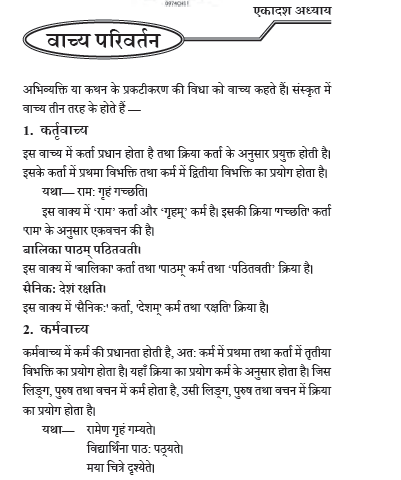 0974CH11
एकादश अध्याय
वाच्य परिवर्तन
अभिव्यक्ति या कथन के प्रकटीकरण की विधा को वाच्य कहते हैं। संस्कृत में
वाच्य तीन तरह के होते हैं —
1. कर्तृवाच्य
इस वाच्य में कर्ता प्रधान होता है तथा क्रिया कर्ता के अनुसार प्रयुक्त होती है।
इसके कर्ता में प्रथमा विभक्ति तथा कर्म में द्वितीया विभक्ति का प्रयोग होता है।
यथा— राम: गृहं गच्छति।
इस वाक्य में ‘राम’ कर्ता और ‘गृहम्’ कर्म है। इसकी क्रिया 'गच्छति' कर्ता
'राम' के अनुसार एकवचन की है।
बालिका पाठम् पठितवती।
इस वाक्य में 'बालिका' कर्ता तथा 'पाठम्' कर्म तथा ‘पठितवती’ क्रिया है।
सैनिक: देशं रक्षति।
इस वाक्य में 'सैनिक:' कर्ता, 'देशम्' कर्म तथा 'रक्षति' क्रिया है।
2. कर्मवाच्य
कर्मवाच्य में कर्म की प्रधानता होती है, अत: कर्म में प्रथमा तथा कर्ता में तृतीया
विभक्ति का प्रयोग होता है। यहाँ क्रिया का प्रयोग कर्म के अनुसार होता है। जिस
लिङ्ग, पुरुष तथा वचन में कर्म होता है, उसी लिङ्ग, पुरुष तथा वचन में क्रिया
का प्रयोग होता है।
यथा— रामेण गृहं गम्यते।
विद्यार्थिना पाठ: पठ्यते।
मया चित्रे दृश्येते।